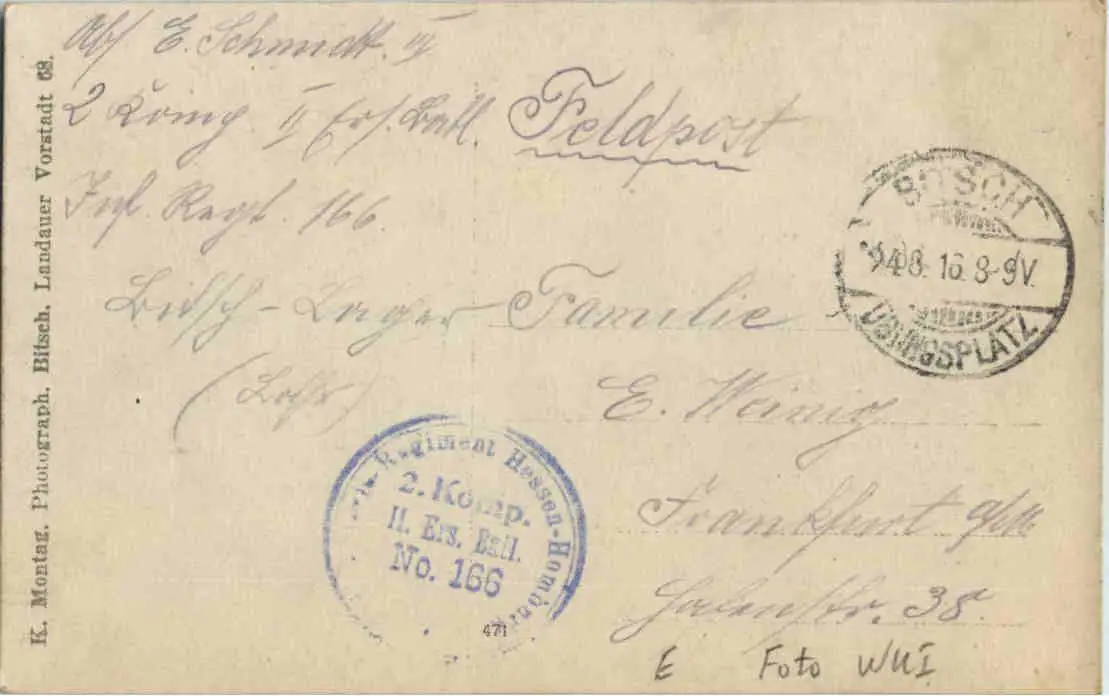 K. Montag. Photograph. Bitsch. Landauer Vorstadt 68.
Abs E. Schmidt. IV
2 Komp II Ers. Batl.
Feldpost
Inf. Regt. 166.
Bitsch-Lager
(Lothr)
BITSCH
8. 16. 8-9V.
ÜBUNGSPLATZ
Familie
E. Weinig
Frankfurt a/M.
38.
Regiment Hessen-Homburg
2. Komp.
II. Ers. Batl.
No. 166
471
E Foto WKI